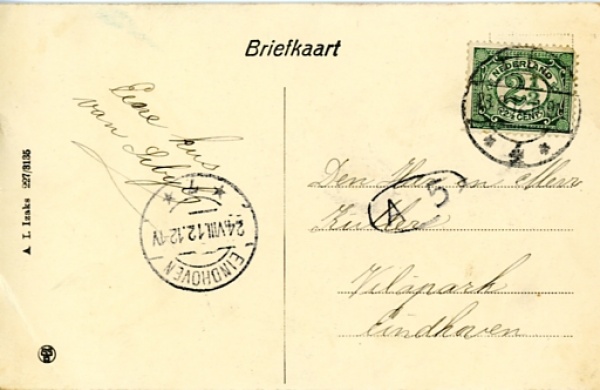 Briefkaart
NEDERLAND
2½
CENT
Eene kus
van
A. L. Izaks 227/3135
EINDHOVEN
24.VIII.12.12-1V
5
Den Heer en Mevr
Vilapark
Eindhoven